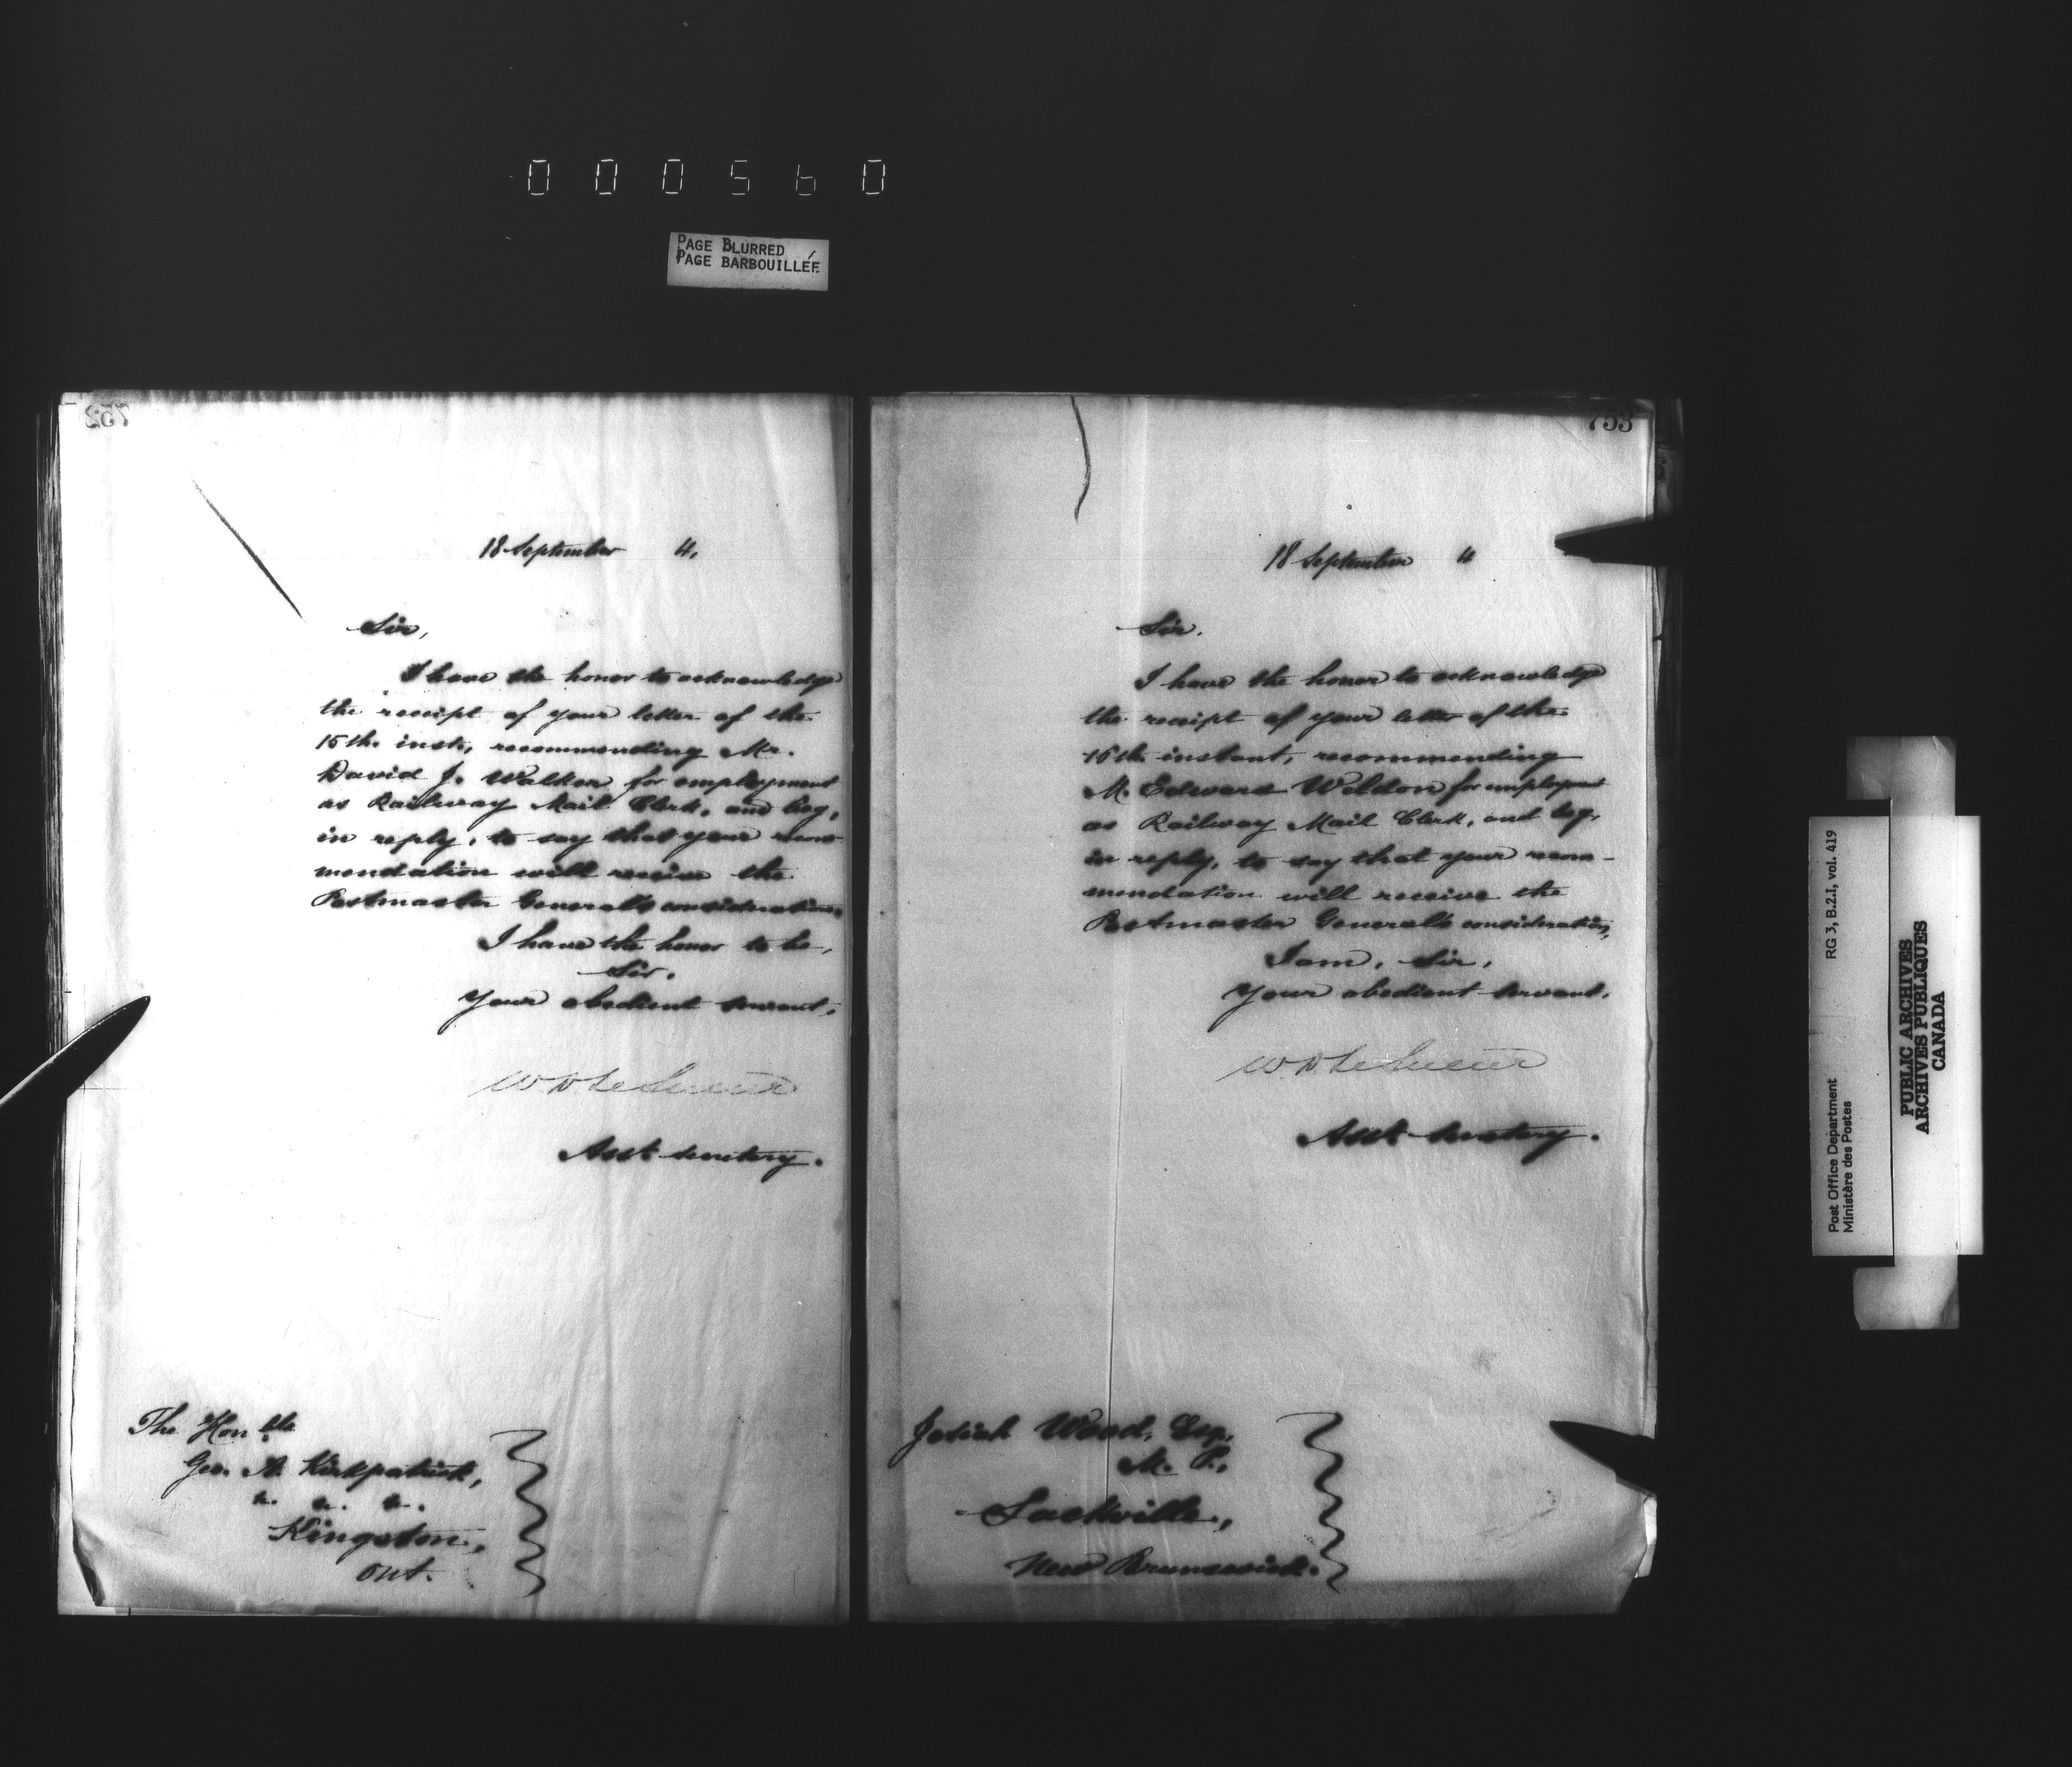 000560
PAGE BLURRED
PAGE BARBOUILLÉE
752
18 September 4,
Sir,
I have the honor to acknowledge
the receipt of your letter of the
15th inst, recommending Mr.
David J. Walker for employment
as Railway Mail Clerk, and beg,
in reply, to say that your recom
mendation will receive the
Postmaster General's consideration,
I have the honor to be,
Sir.
Your obedient servant,
W D LeSueur
Asst secretary.
The Honble
Geo. A. Kirkpatrick,
&. &. &.
Kingston,
Ont.
753
18 September 4
Sir.
I have the honor to acknowledge
the receipt of your letter of the
16th instant, recommending
M. Edward Weldon for employment
as Railway Mail Clerk, and beg,
in reply, to say that your recom-
mendation will receive the
Postmaster General's consideration,
I am, Sir,
Your obedient servant.
W D LeSueur
Asst secretary.
Josiah Wood, Esq,
M. P.,
Sackville,
New Brunswick.
Post Office Department
Ministère des Postes
RG 3, B.2.I, vol. 419
PUBLIC ARCHIVES
ARCHIVES PUBLIQUES
CANADA